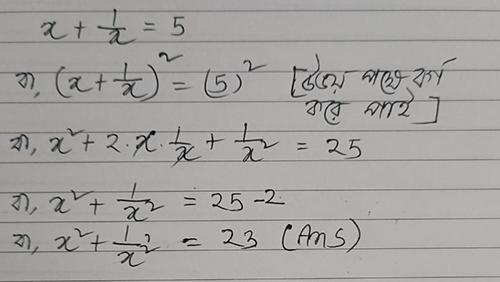 x + 1/x = 5
বা, (x + 1/x)² = (5)² [উভয় পক্ষে বর্গ
করে পাই]
বা, x² + 2·x·1/x + 1/x² = 25
বা, x² + 1/x² = 25 - 2
বা, x² + 1/x² = 23 (Ans)